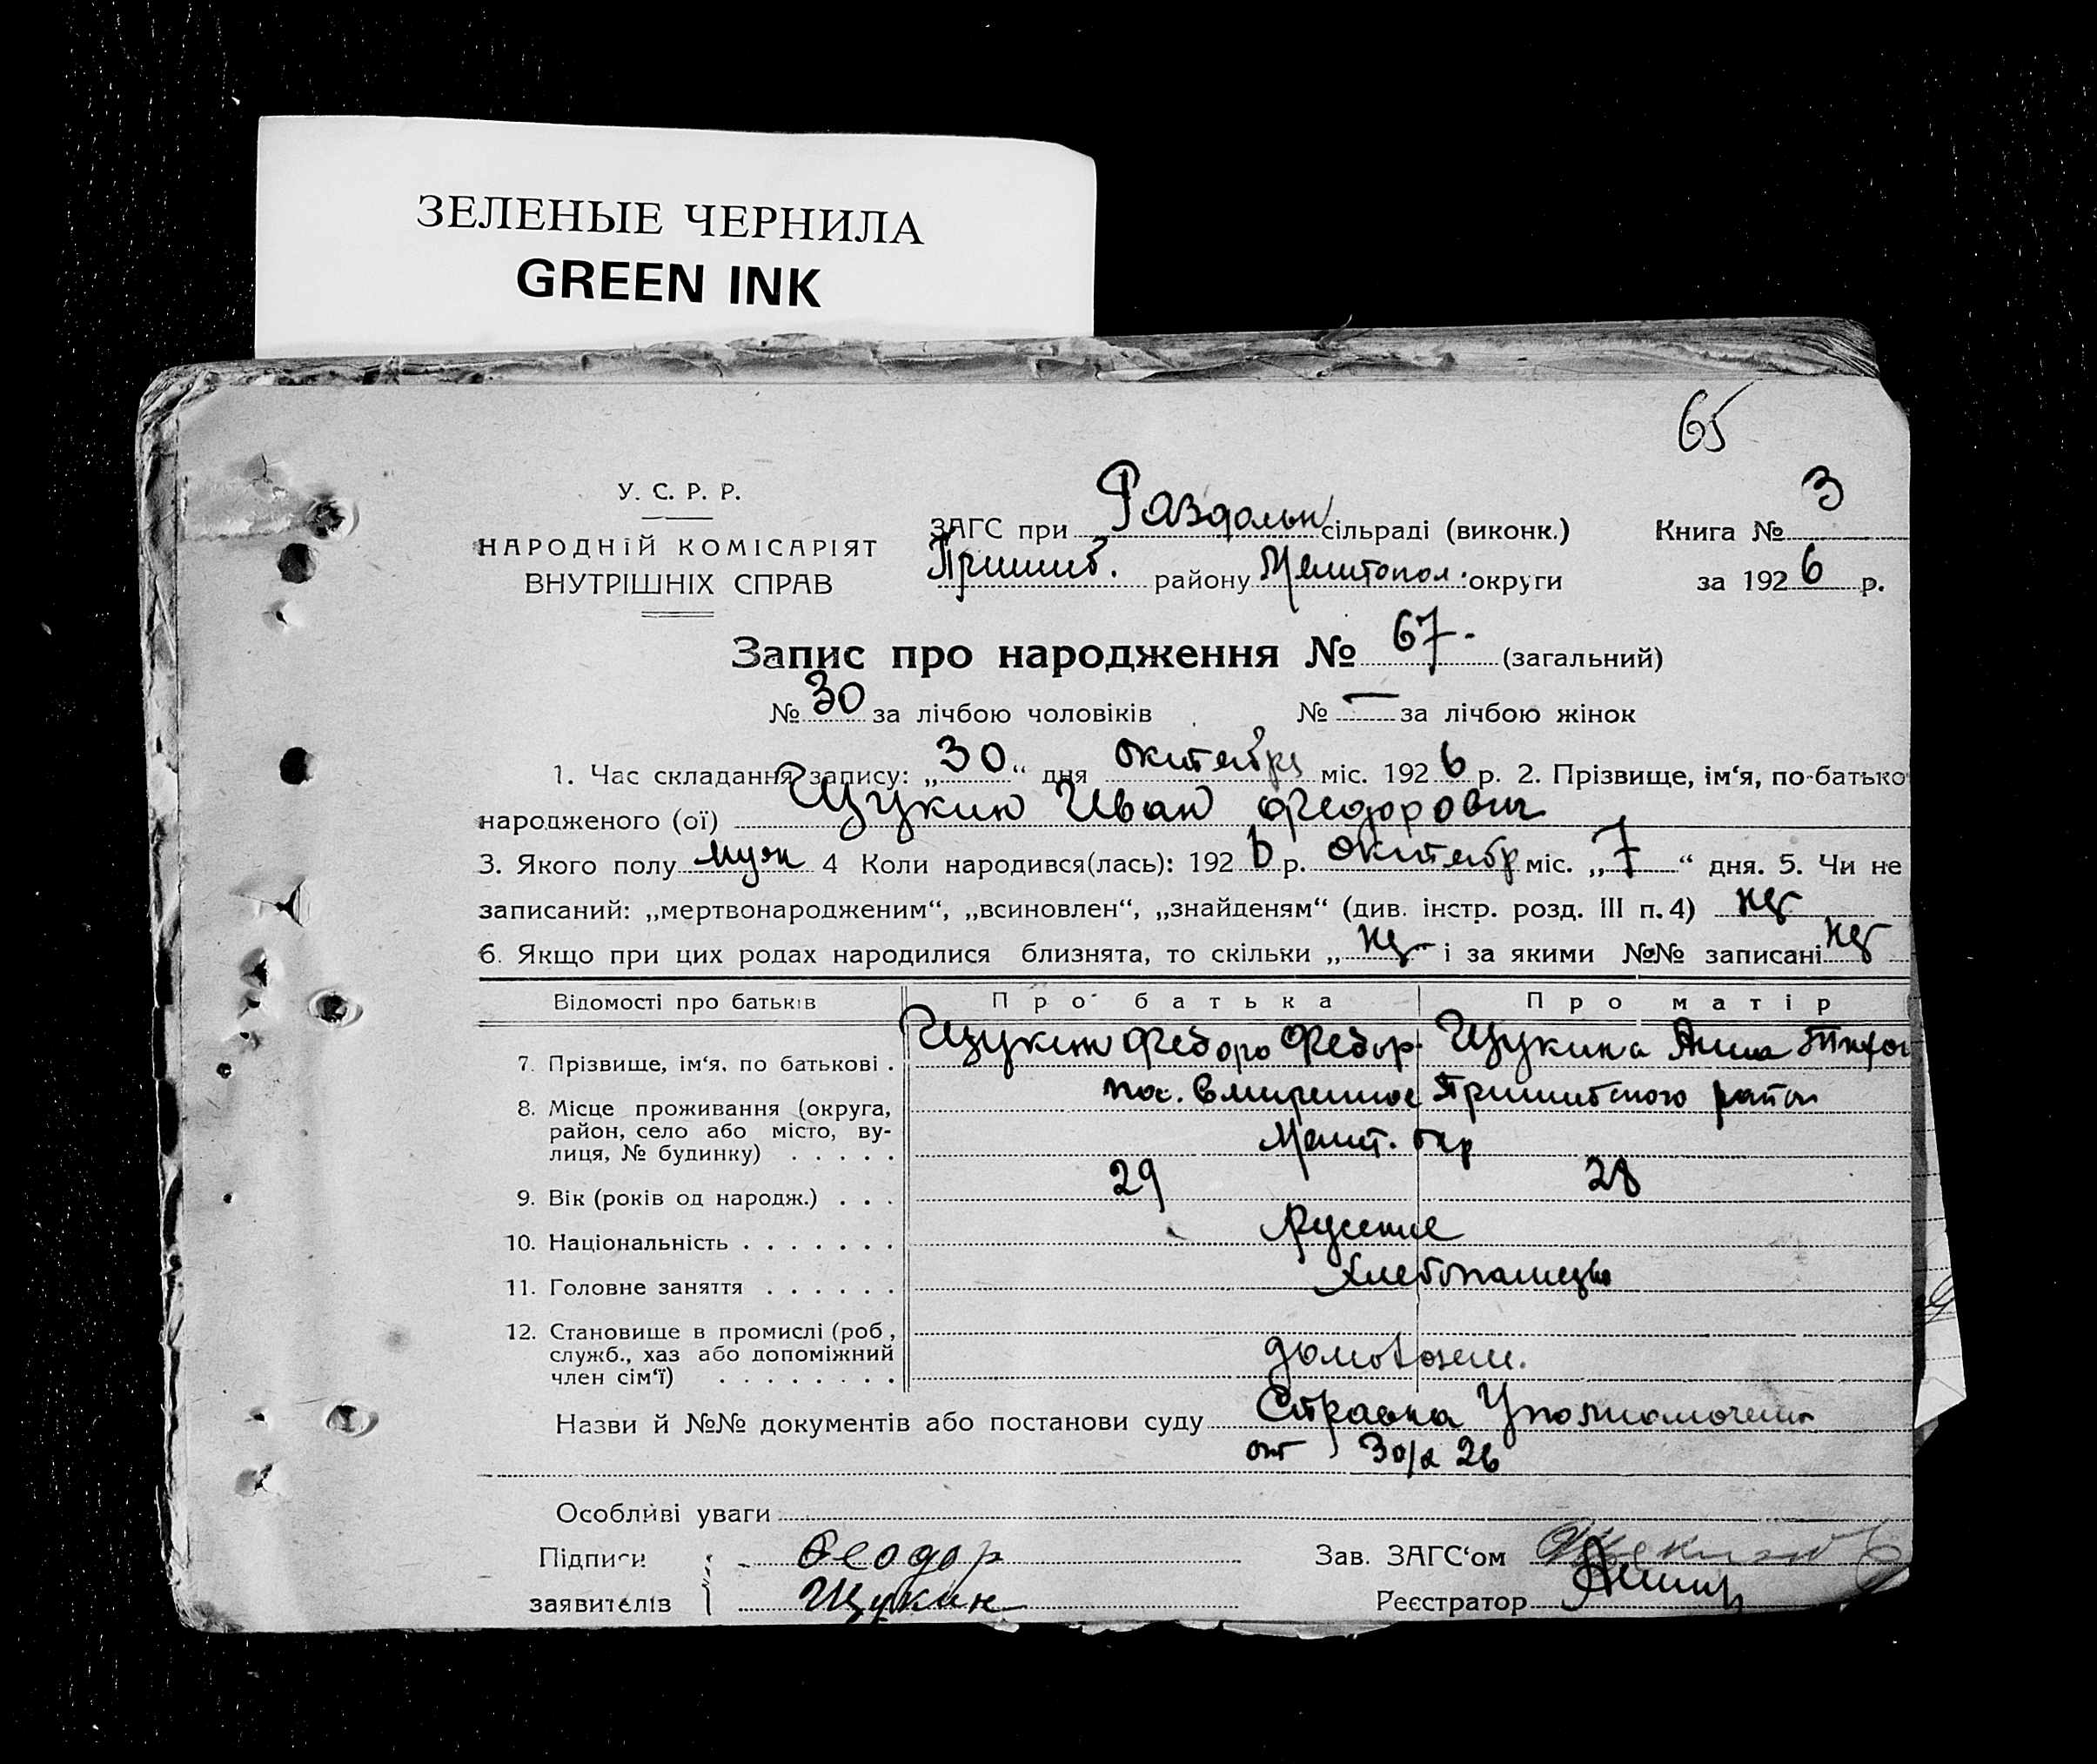 ЗЕЛЕНЫЕ ЧЕРНИЛА
GREEN INK
65
У. С. Р. Р.
НАРОДНІЙ КОМІСАРІЯТ
ВНУТРІШНІХ СПРАВ
ЗАГС при Раздольн сільраді (виконк.)
Пришиб. району Мелитопол. округи
Книга № 3
за 1926 р.
Запис про народження № 67. (загальний)
№ 30 за лічбою чоловіків № — за лічбою жінок
1. Час складання запису: „30“ дня октября міс. 1926 р. 2. Прізвище, ім‘я, по-батько
народженого (ої) Щукин Иван Федорович
3. Якого полу муж 4 Коли народився(лась): 1926 р. октябр міс. „7“ дня. 5. Чи не
записаний: „мертвонародженим“, „всиновлен“, „знайденям“ (див. інстр. розд. III п. 4) нет
6. Якщо при цих родах народилися близнята, то скільки „ нет і за якими №№ записані нет
Відомості про батьків Про батька Про матір
7. Прізвище, ім‘я, по батькові . Щукин Федор Федор. Щукина Анна Тихон
8. Місце проживання (округа, район, село або місто, ву-
лиця, № будинку) . . . . . пос. Смиренное Пришибского район
Мелит. окр
9. Вік (років од народж.) . . . 29 28
10. Національність . . . . . . . Русские
11. Головне заняття . . . . . . Хлебопашцы
12. Становище в промислі (роб.,
служб., хаз або допоміжний
член сім‘ї) . . . . . . . . домохозяи.
Назви й №№ документів або постанови суду Справка Уполномочен
от 30/X 26
Особливі уваги
Підписи Феодор
заявителів Щукин
Зав. ЗАГС‘ом
Реєстратор